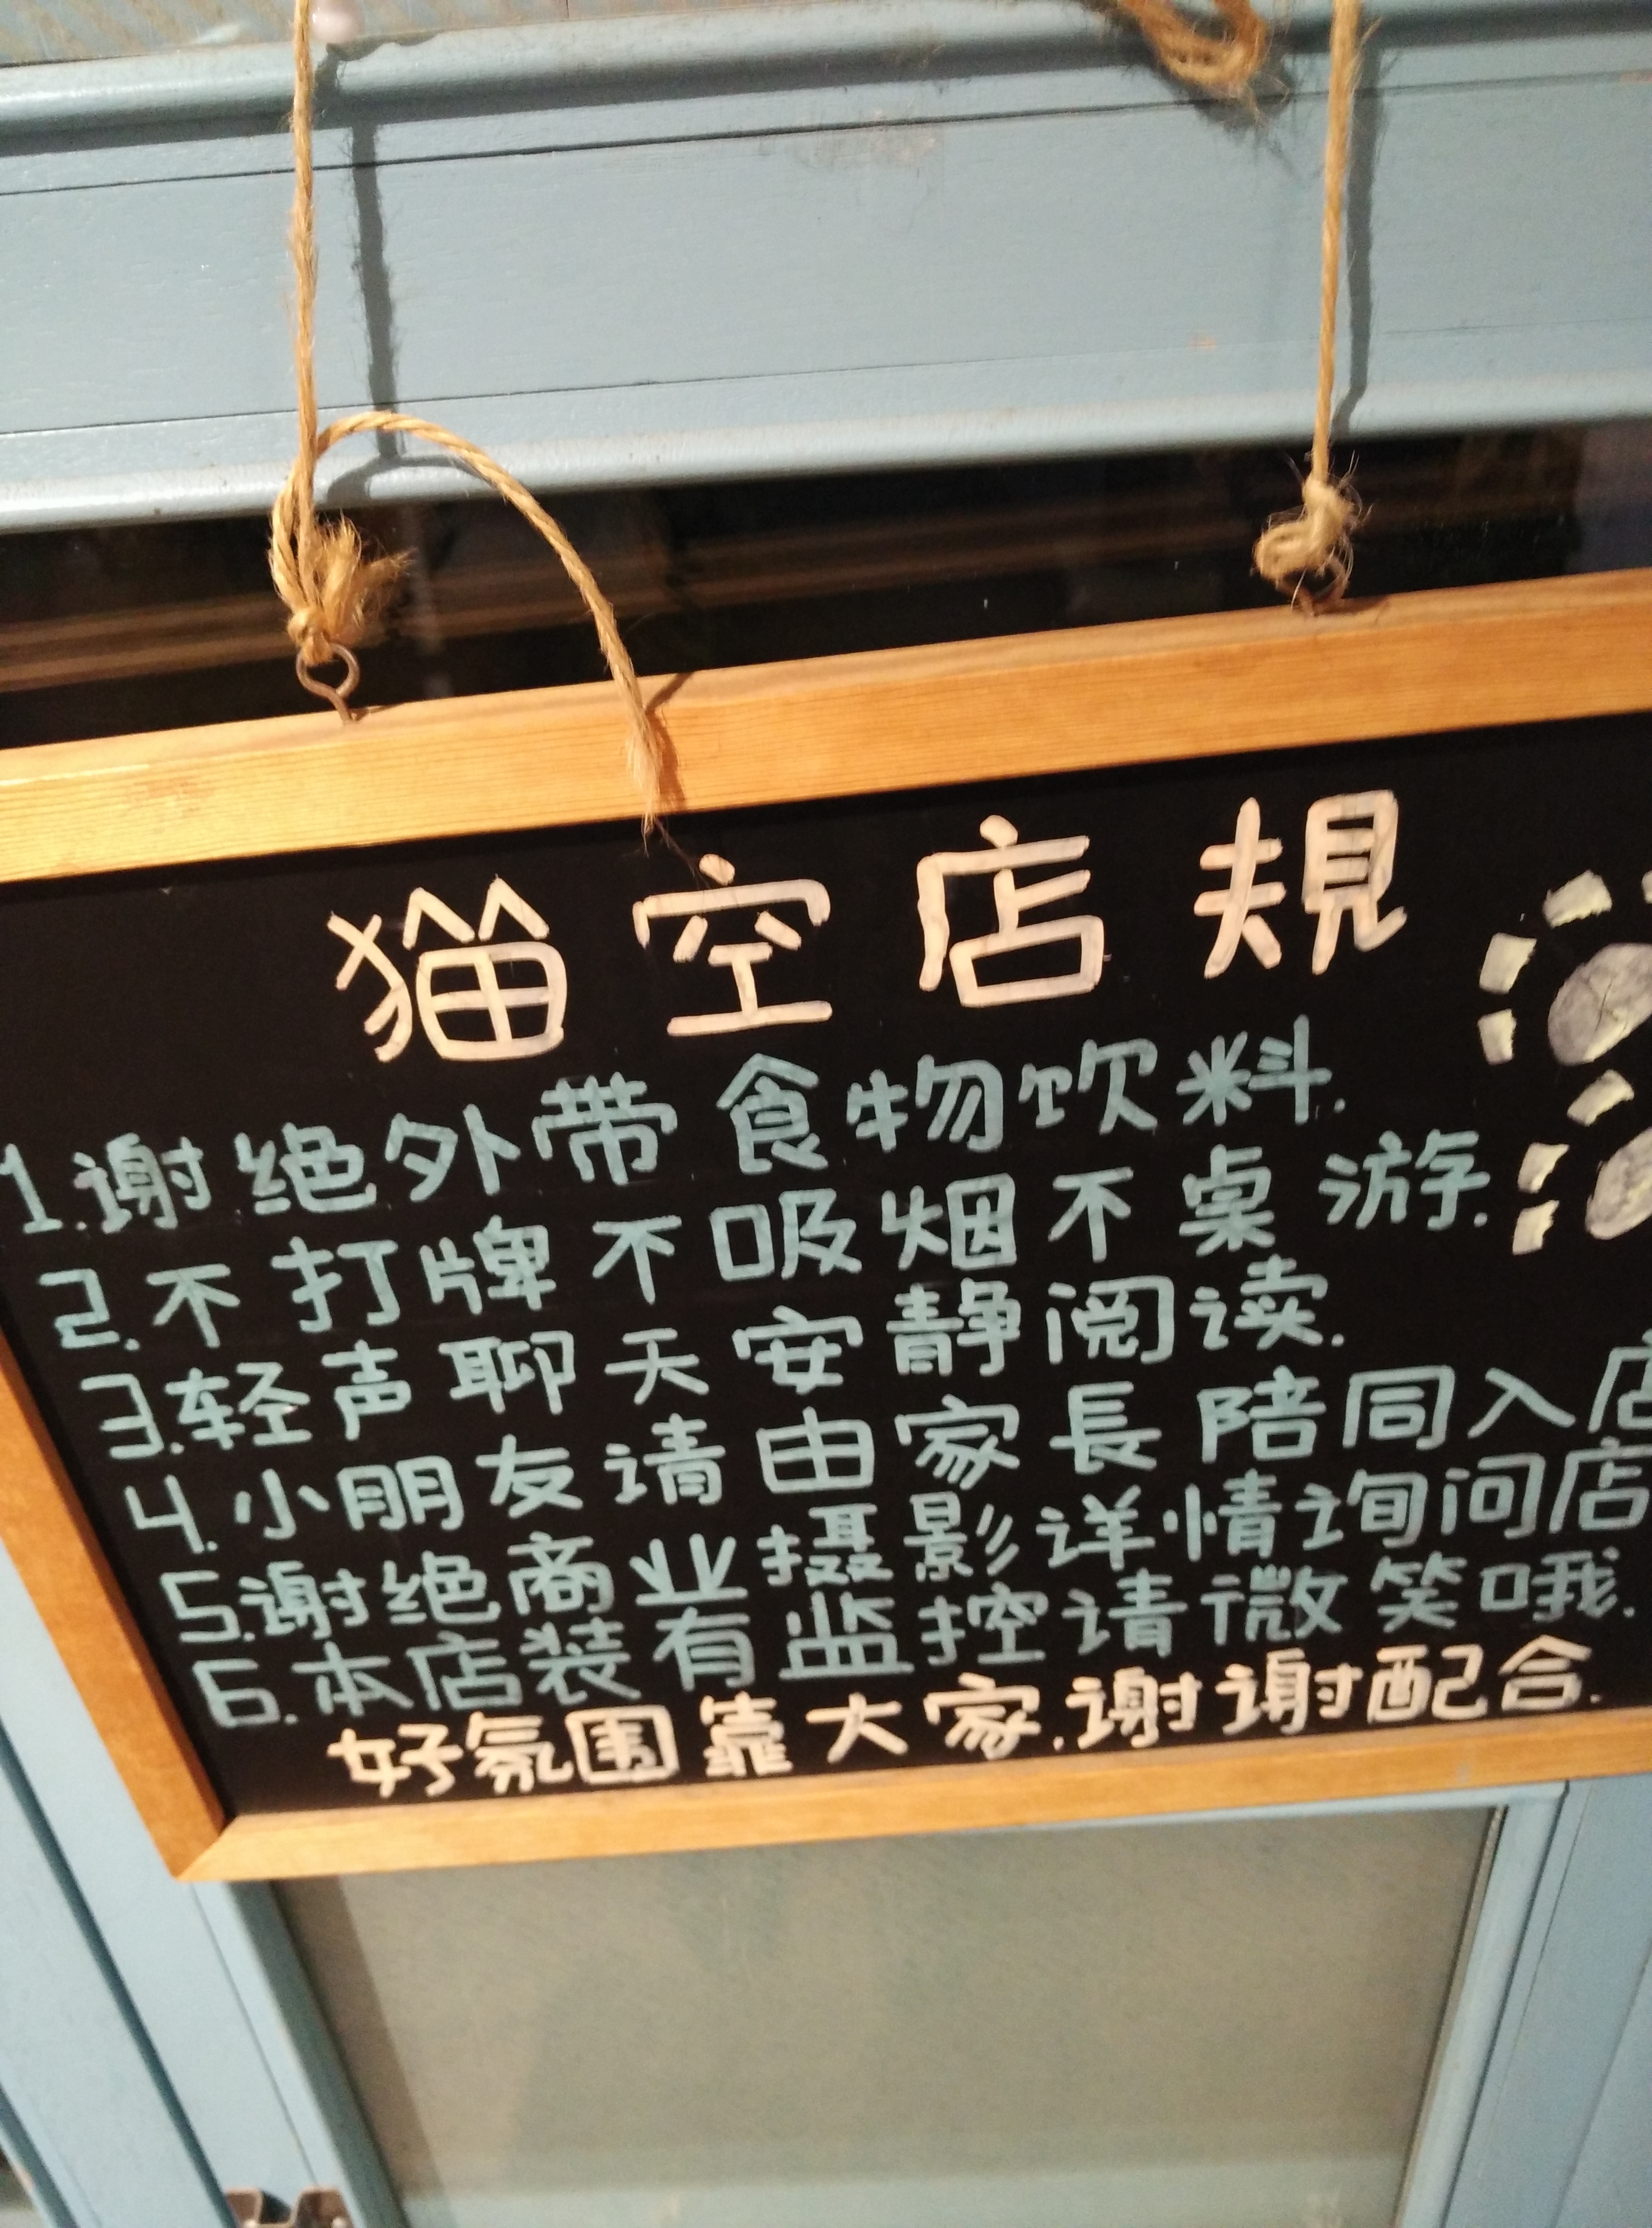 猫空店規
1.谢绝外带食物饮料.
2.不打牌不吸烟不桌游.
3.轻声聊天安静阅读.
4.小朋友请由家長陪同入店
5.谢绝商业摄影详情询问店
6.本店装有监控请微笑哦.
好氛围靠大家.谢谢配合.